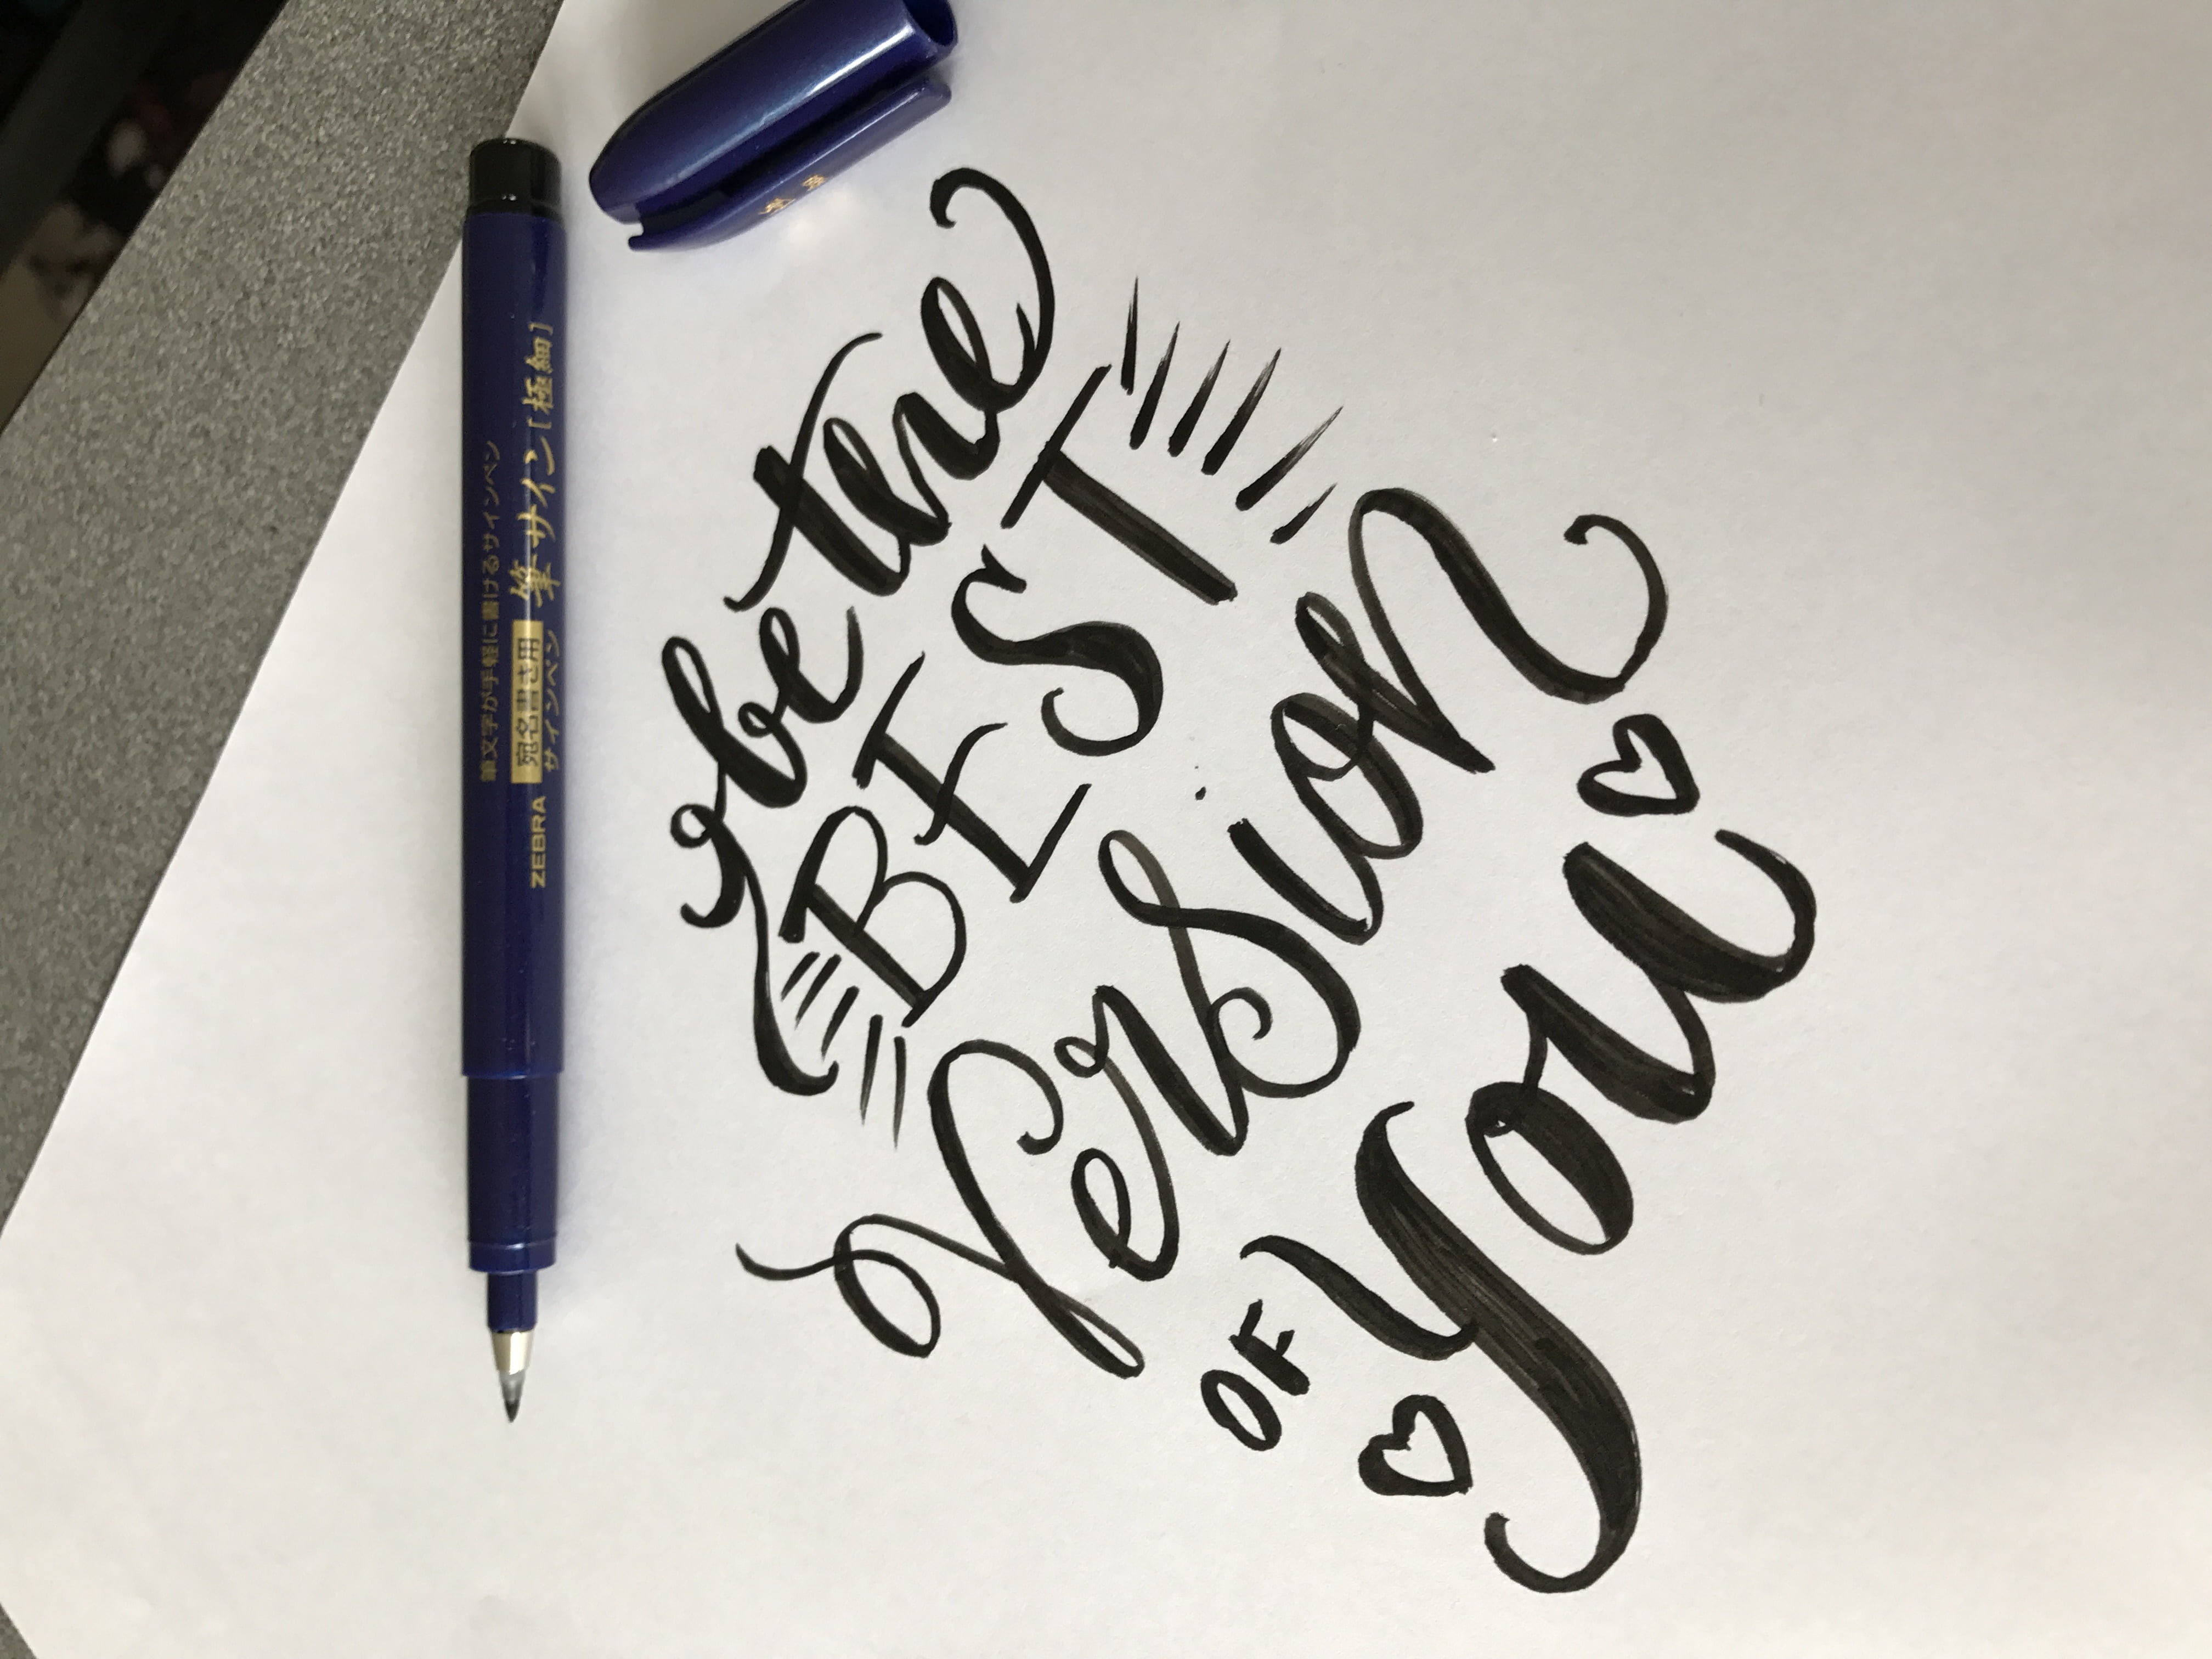 be the
BEST
Version
OF you
筆文字が手軽に書けるサインペン
ZEBRA 宛名書き用サインペン 筆サイン[極細]